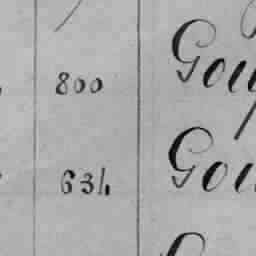 800 Gou
634 Gou